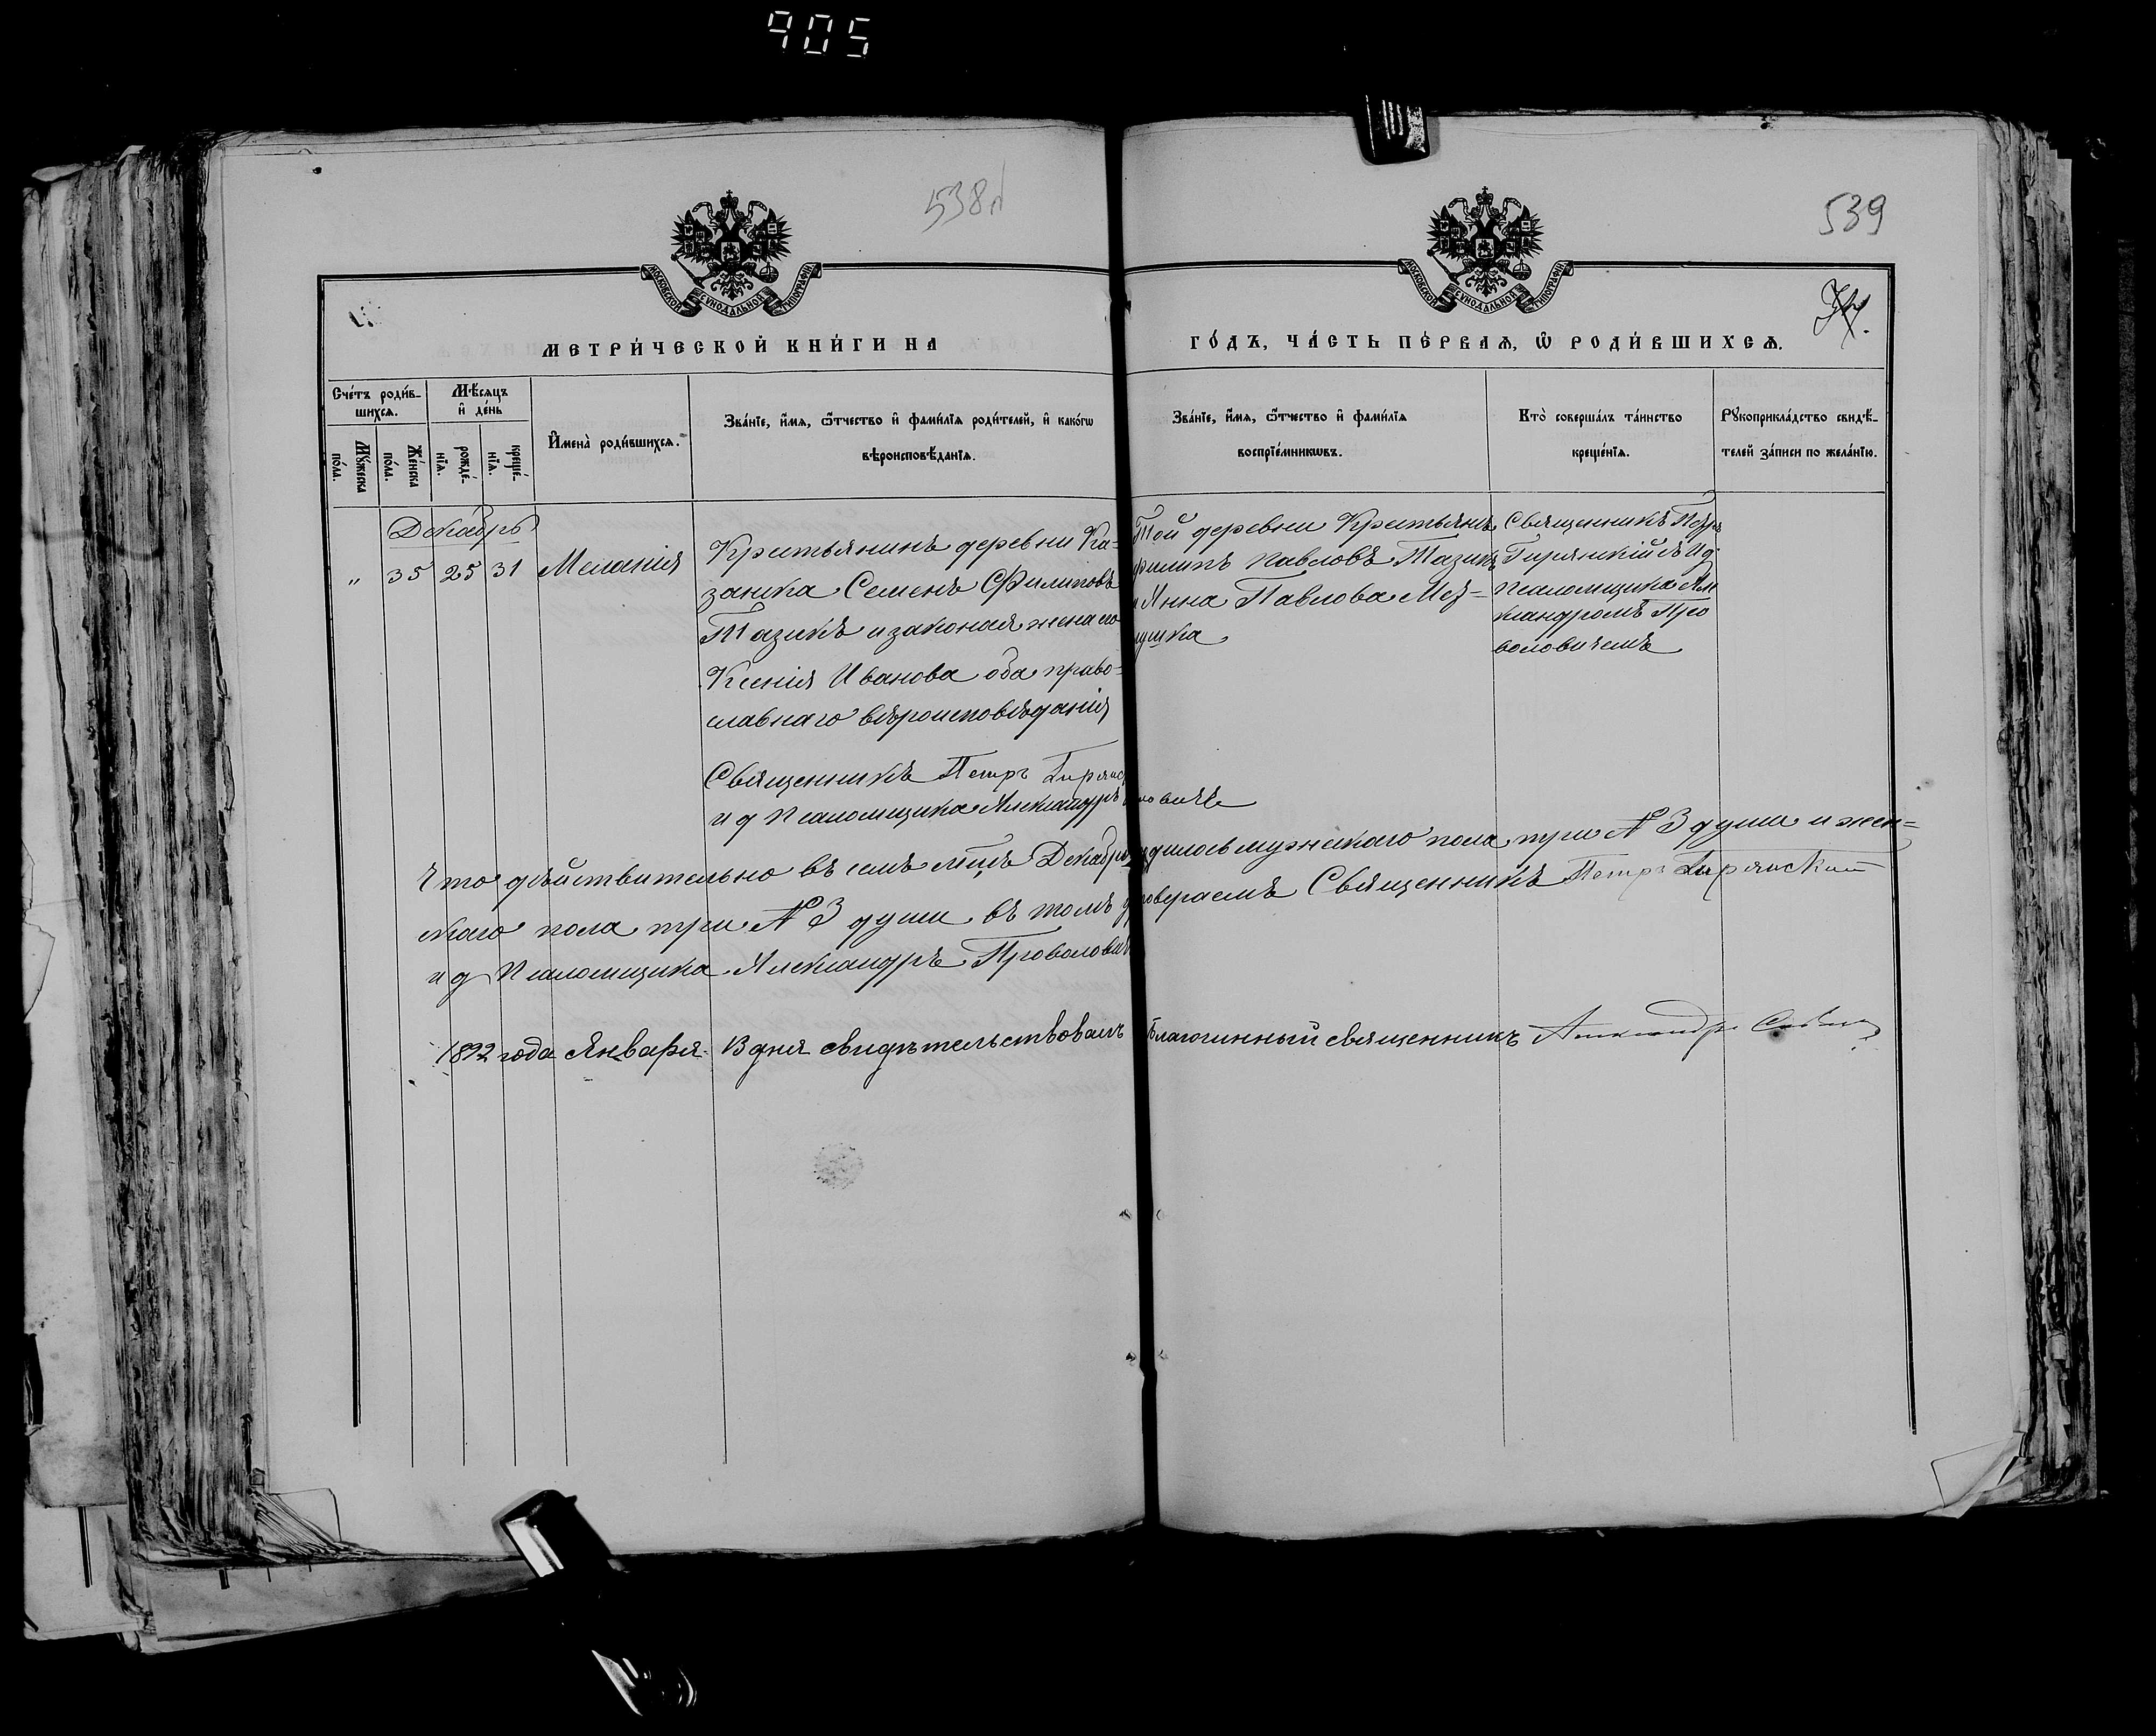 905
538
539
МОСКОВСКОЙ СѴНОДАЛЬНОЙ ТИПОГРАФІИ
МОСКОВСКОЙ СѴНОДАЛЬНОЙ ТИПОГРАФІИ
МЕТРИ́ЧЕСКОЙ КНИ́ГИ НА
ГО́ДЪ, ЧА́СТЬ ПЕ́РВАѦ, Ѽ РОДИ́ВШИХСѦ.
Сче́тъ роди́в-
шихсѧ.
Мꙋ́жеска
по́ла.
Же́нска
по́ла.
Мѣ́сѧцъ
и҆ де́нь
рожде́-
нїѧ.
креще́-
нїѧ.
И҆мена̀ роди́вшихсѧ.
Зва́нїе, и҆́мѧ, ѻ҆́тчество и҆ фами́лїѧ роди́телей, и҆ како́гѡ
вѣроисповѣ́данїѧ.
Зва́нїе, и҆́мѧ, ѻ҆́тчество и҆ фами́лїѧ
воспрїе́мникѡвъ.
Кто̀ соверша́лъ та́инство
креще́нїѧ.
Рꙋкоприкла́дство свидѣ́-
телей за́писи по жела́нїю.
Декабрь
" 35 25 31 Меланія
Крестьянинъ деревни Ка-
занка Семенъ Филиповъ
Тазикъ и законая жена его
Ксенія Иванова оба право-
славнаго вѣроисповѣданія
Той деревни Крестьянинъ
филипъ Павловъ Тазикъ
и Анна Павлова
Священникъ Петръ
Гирянскій съ И д
Псаломщика Але
ксандромъ Про
воловичемъ
Священникъ Петръ
и д Псаломщика Александръ
Что дѣйствительно въ семъ мцѣ Декабрь родилось мужескаго пола три № 3 души и жен=
скаго пола три № 3 души въ томъ удоверяемъ Священникъ Петръ Гирянский
и д Псаломщика Александръ Проволовичъ
1892 года Января 13 дня свидѣтельствовалъ Благочинный священникъ Александръ